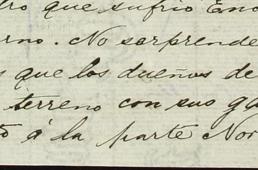 tro que sufrió Eno
erno. No sorprende
s que los dueños de
terreno con sus ga
ó á la parte Nor